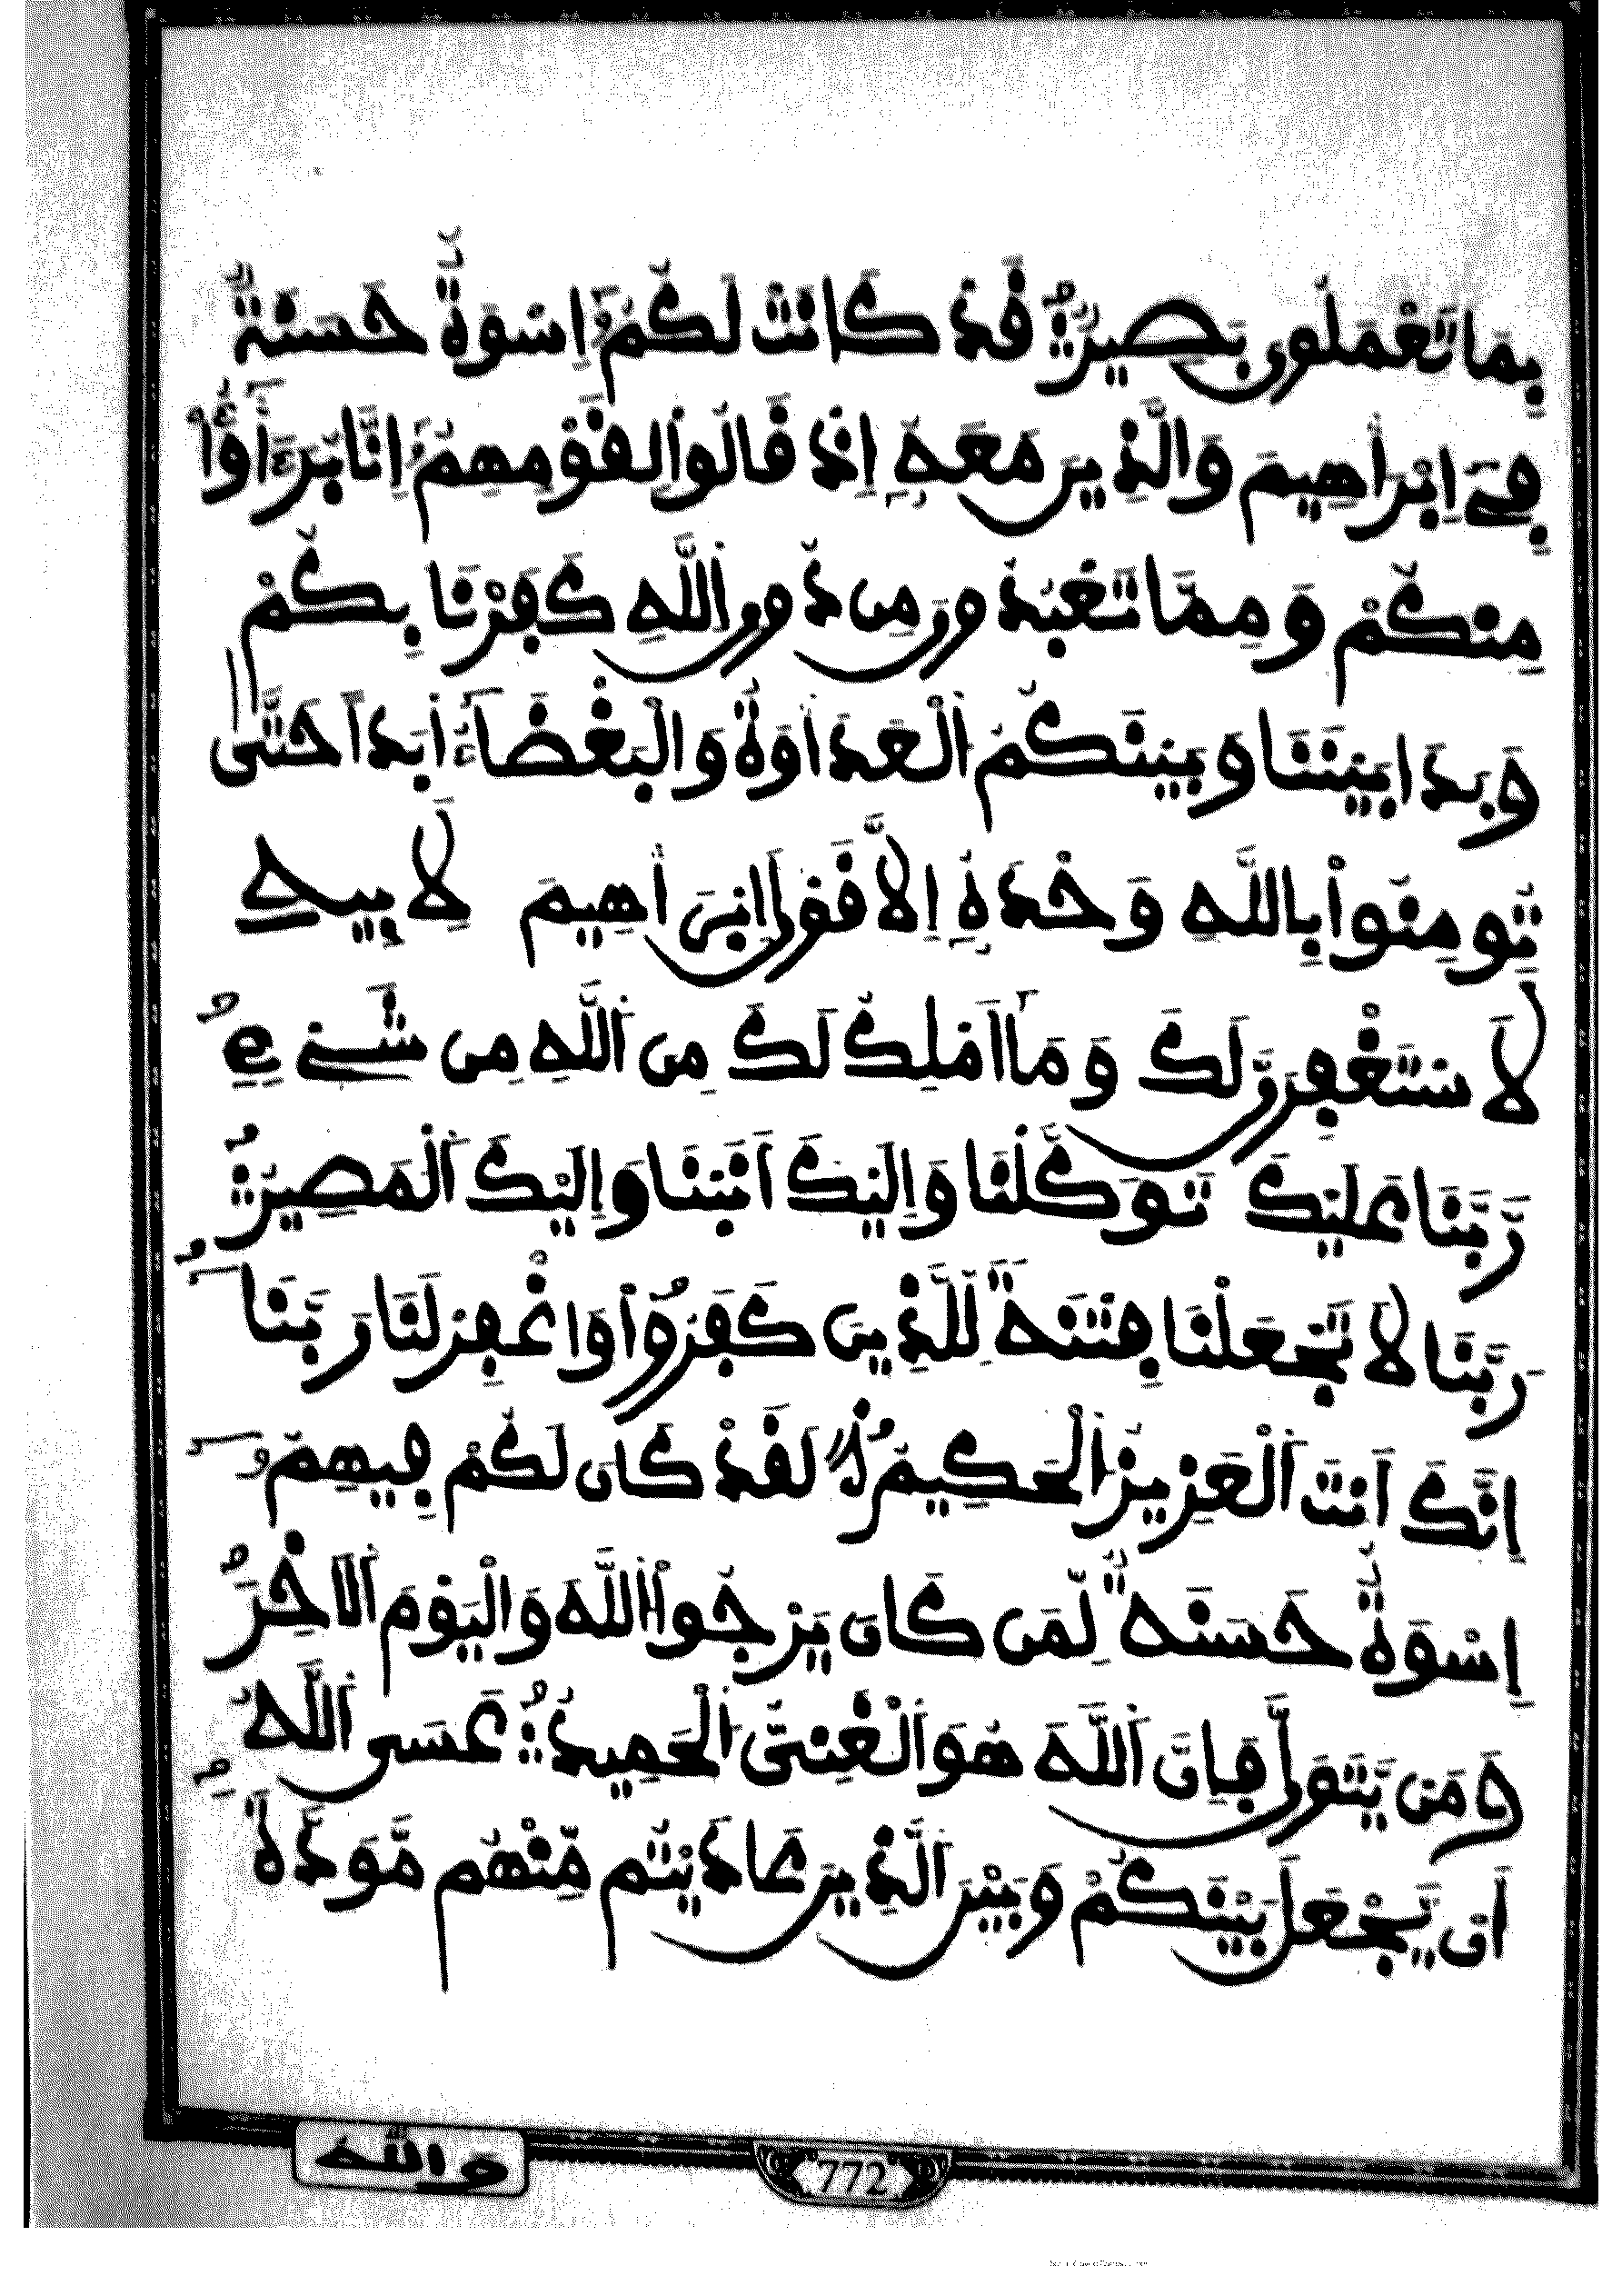 بِمَا تَعْمَلُونَ بَصِيرٌ قَدْ كَانَتْ لَكُمُ إِسْوَةٌ حَسَنَةٌ
فِي إِبْرَاهِيمَ وَالَّذِينَ مَعَهُ إِذْ قَالُوا لِقَوْمِهِمُ إِنَّا بُرَءَاؤُا
مِنكُمْ وَمِمَّا تَعْبُدُونَ مِن دُونِ اللَّهِ كَفَرْنَا بِكُمْ
وَبَدَا بَيْنَنَا وَبَيْنَكُمُ الْعَدَاوَةُ وَالْبَغْضَاءُ أَبَدًا حَتَّى
تُومِنُوا بِاللَّهِ وَحْدَهُ إِلَّا قَوْلَ إِبْرَاهِيمَ لِأَبِيهِ
لَأَسْتَغْفِرَنَّ لَكَ وَمَا أَمْلِكُ لَكَ مِنَ اللَّهِ مِن شَيْءٍ
رَّبَّنَا عَلَيْكَ تَوَكَّلْنَا وَإِلَيْكَ أَنَبْنَا وَإِلَيْكَ الْمَصِيرُ
رَبَّنَا لَا تَجْعَلْنَا فِتْنَةً لِّلَّذِينَ كَفَرُوا وَاغْفِرْ لَنَا رَبَّنَا
إِنَّكَ أَنتَ الْعَزِيزُ الْحَكِيمُ لَقَدْ كَانَ لَكُمْ فِيهِمُ
إِسْوَةٌ حَسَنَةٌ لِّمَن كَانَ يَرْجُوا اللَّهَ وَالْيَوْمَ الْآخِرَ
وَمَن يَتَوَلَّ فَإِنَّ اللَّهَ هُوَ الْغَنِيُّ الْحَمِيدُ عَسَى اللَّهُ
أَن يَجْعَلَ بَيْنَكُمْ وَبَيْنَ الَّذِينَ عَادَيْتُم مِّنْهُم مَّوَدَّةً
والله
772